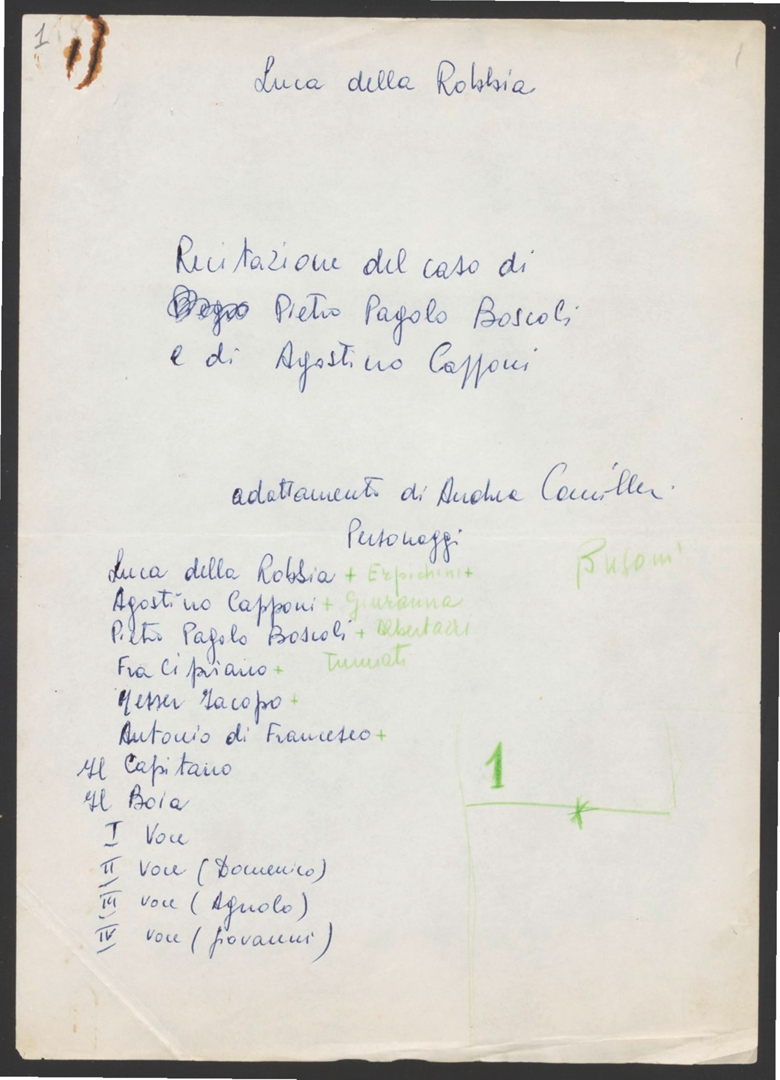 1
1
Luca della Robbia
Recitazione del caso di
Pietro Pagolo Boscoli
e di Agostino Capponi
adattamento di Andrea Camilleri
Personaggi
Busoni
Luca della Robbia + Erpichini +
Agostino Capponi + Giuranna
Pietro Pagolo Boscoli + Albertazzi
Fra Cipriano + Tumiati
Messer Jacopo +
Antonio di Francesco +
Il Capitano
1
Il Boia
I Voce
II Voce (Domenico)
III voce (Agnolo)
IV voce (Giovanni)